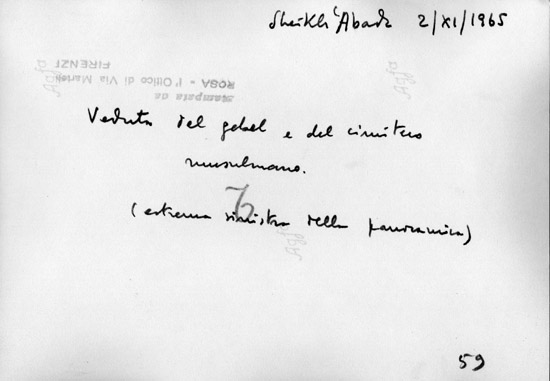 Sheikh 'Abada 2/XI/1965
Stampata da
ROSA - l'Ottico di Via Martelli
FIRENZE
Veduta del gebel e del cimitero
musulmano.
76
(estrema sinistra della panoramica)
Agfa
Agfa
Agfa
59